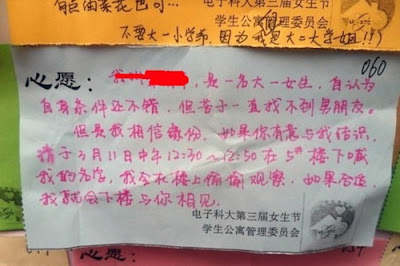 不要大一小学弟,因为我是大二大学姐!!!)
电子科大第三届女生节
学生公寓管理委员会
心愿:
060
,是一名大一女生,自认为
自身条件还不错,但苦于一直找不到男朋友。
但是我相信缘份,如果你有意与我结识,
请于3月11日中午12:30~12:50在5#楼下喊
我的名字,我会在楼上偷偷观察,如果合适
我就会下楼与你相见。
电子科大第三届女生节
学生公寓管理委员会
心愿: